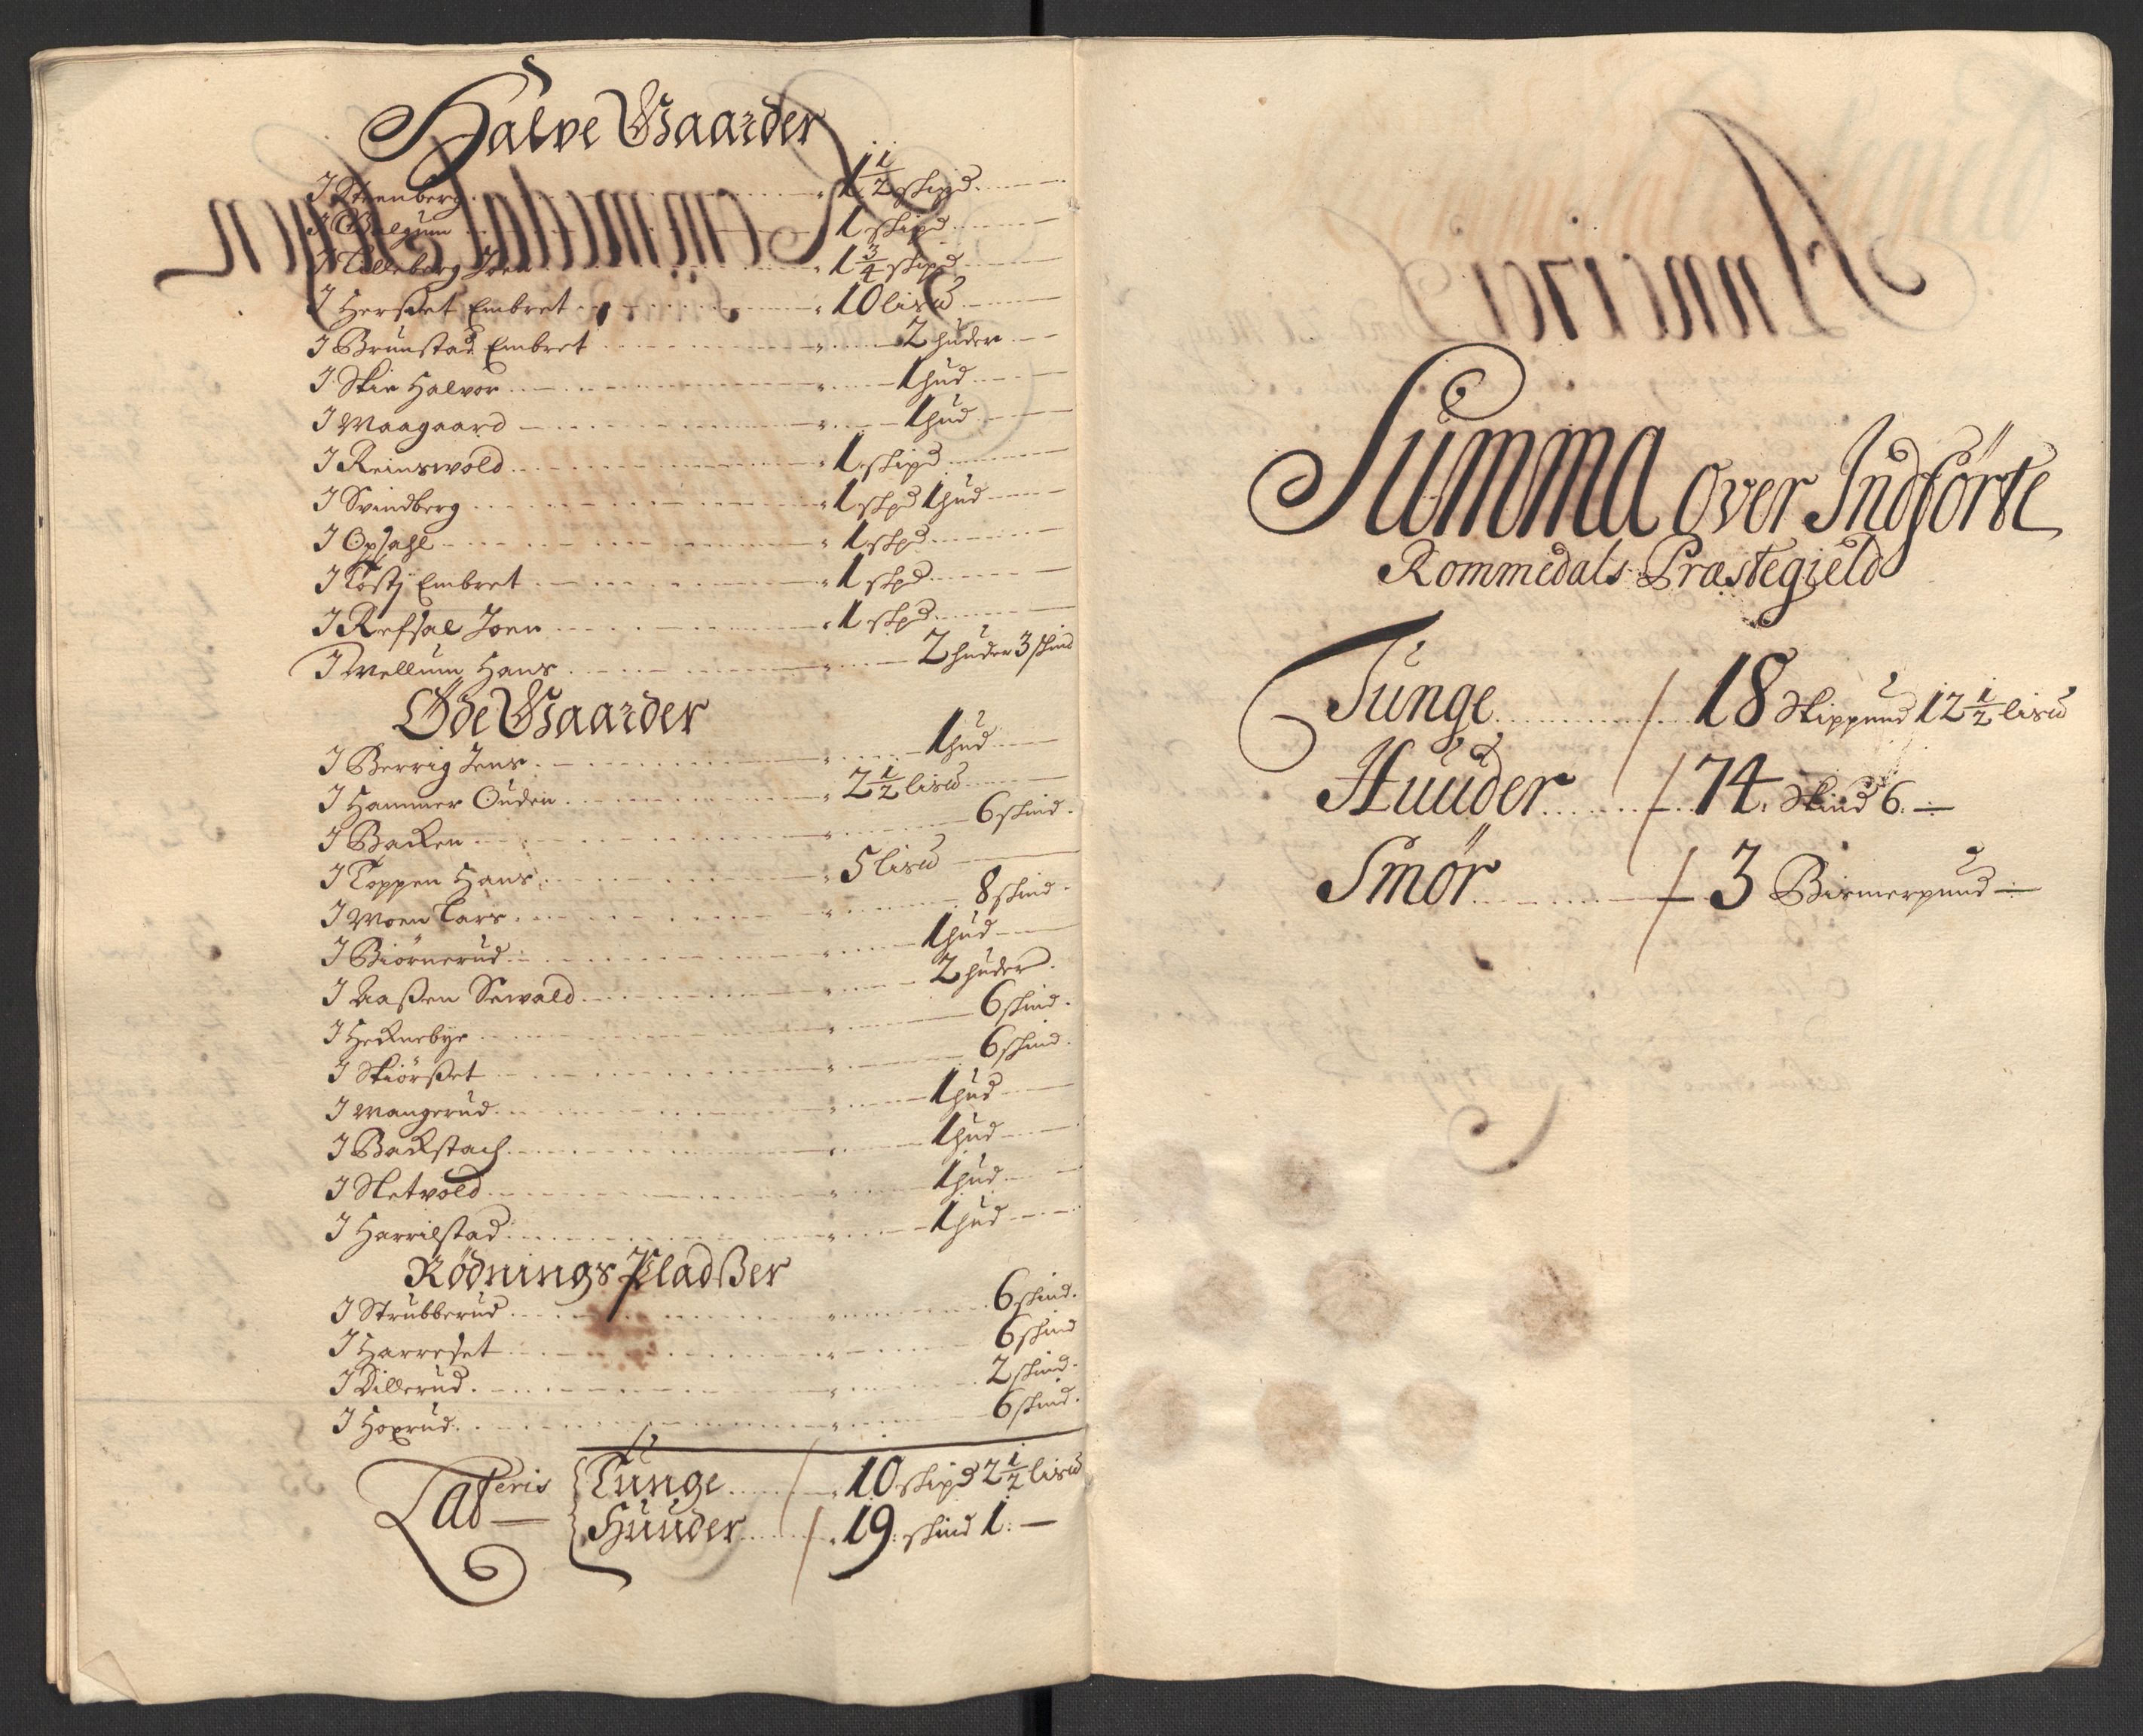 Halve Gaarder
J Steenberg 1 1/2 skipd
J Galgum 1 skipd
J Lilleberg Joen 1 3/4 skipd
J Herset Embret 10 lisd
J Brunstad Embret 2 huder
J Skie Halvor 1 hud
J Waagaard 1 hud
J Reinswold 1 skipd
J Svindberg 1 skpd 1 hud
J Opsahl 1 skpd
J Tostj Embret 1 skpd
J Refsal Joen 1 skpd
J Wellum Hans 2 huder 3 skind
Øde Gaarder
J Berrig Jens 1 hud
J Hammer Ouden 2 1/2 lisd
J Backen 6 skind
J Toppen Hans 5 lisd
J Moen Lars 8 skind
J Biörnerud 1 hud
J Aaßen Sewald 2 huder
J Hecknebye 6 skind
J Skiörßet 6 skind
J Mangerud 1 hud
J Backstach 1 hud
J Sletvold 1 hud
J Harrilstad 1 hud
Rödnings Pladßer
J Strubberud 6 skind
J Harreset 6 skind
J Dillerud 2 skind
J Hoxrud 6 skind
Lateris Tunge 10 skipd 2 1/2 lisd
Huuder 19: skind 1:
Summa over Indförte
Rommedals Præstegield
Tunge 18 Skippund 12 1/2 lisd
Huuder 74. Skind 6.
Smör 3 Bismerpund